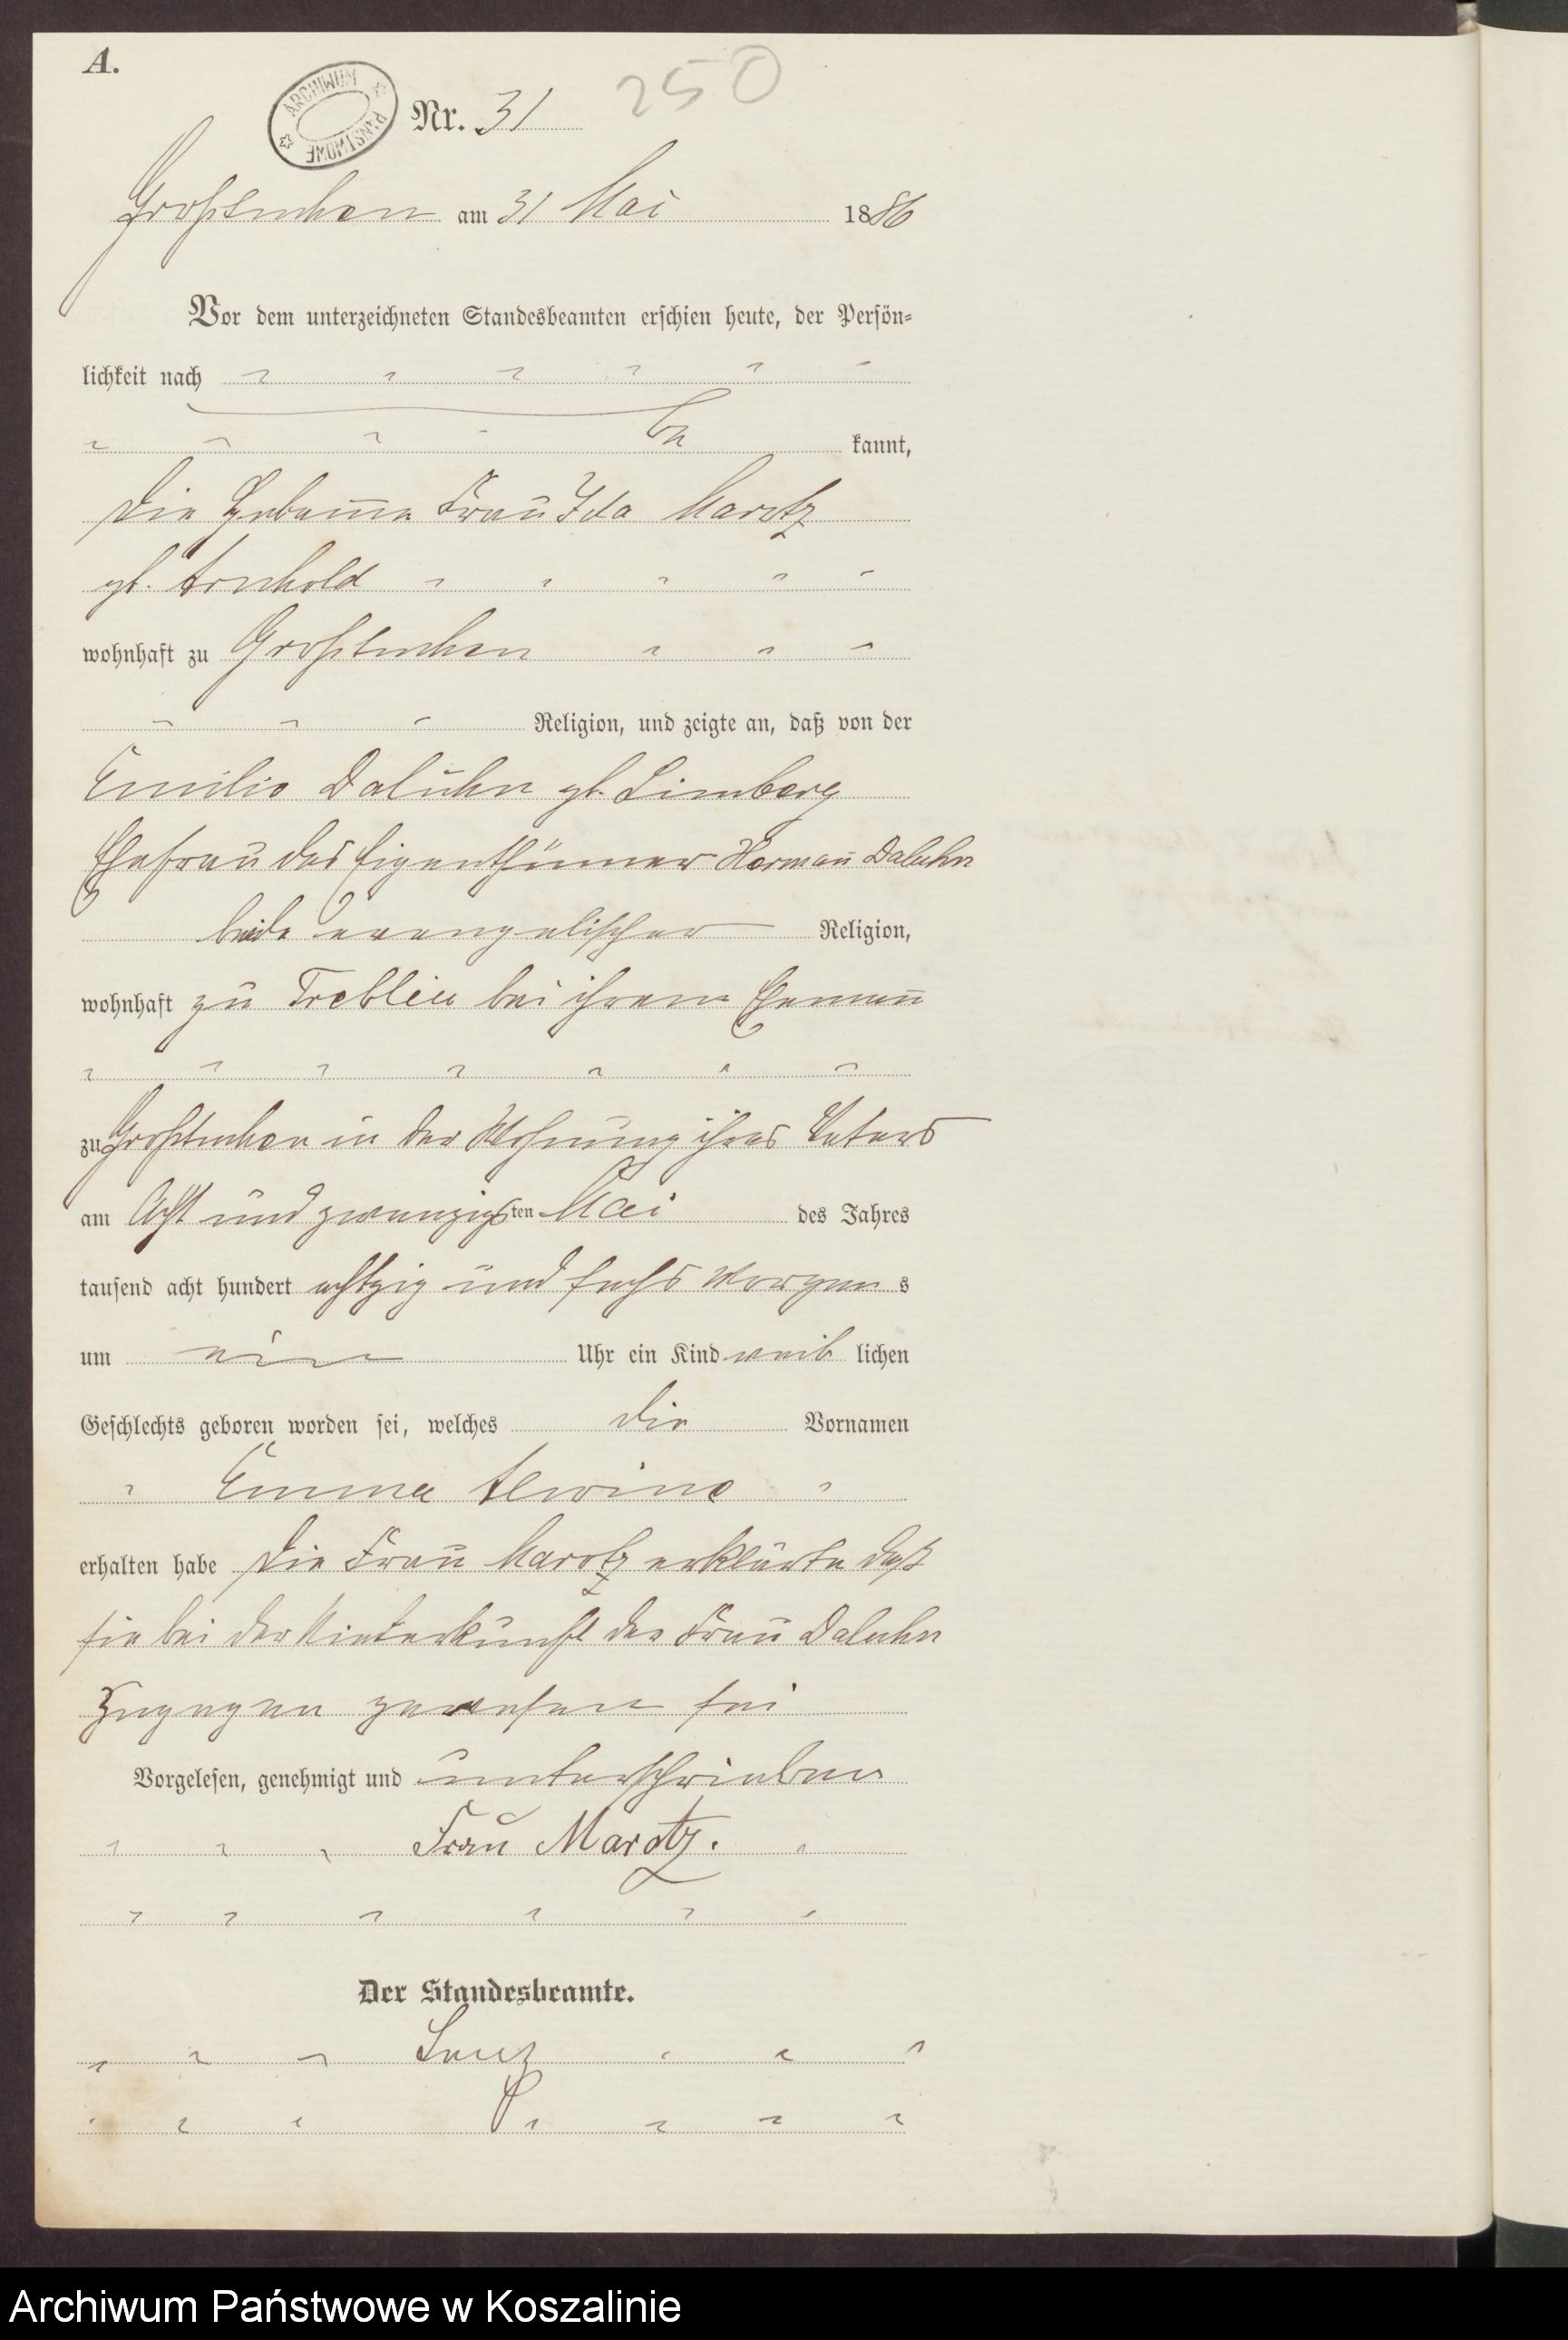 A.
ARCHIWUM PAŃSTWOWE
Nr. 31
250
Großtuchen am 31 Mai 1886
Vor dem unterzeichneten Standesbeamten erschien heute, der Persön-
lichkeit nach
be kannt,
die Hebamme Frau Ida Marotz
gb. Arnhold
wohnhaft zu Großtuchen
Religion, und zeigte an, daß von der
Emilie Daluhn gb. Limberg
Ehefrau des Eigenthümer Hermann Daluhn
beide evangelischer Religion,
wohnhaft zu Treblin bei ihrem Ehemann
zu Großtuchen in der Wohnung ihres Vaters
am Acht und zwanzigsten Mai des Jahres
tausend acht hundert achtzig und sechs Morgens
um ein Uhr ein Kind weiblichen
Geschlechts geboren worden sei, welches die Vornamen
Emma Alwine
erhalten habe die Frau Marotz erklärte daß
sie bei der Niederkunft der Frau Daluhn
Zugegen gewesen sei
Vorgelesen, genehmigt und unterschrieben
Frau Marotz.
Der Standesbeamte.
Archiwum Państwowe w Koszalinie